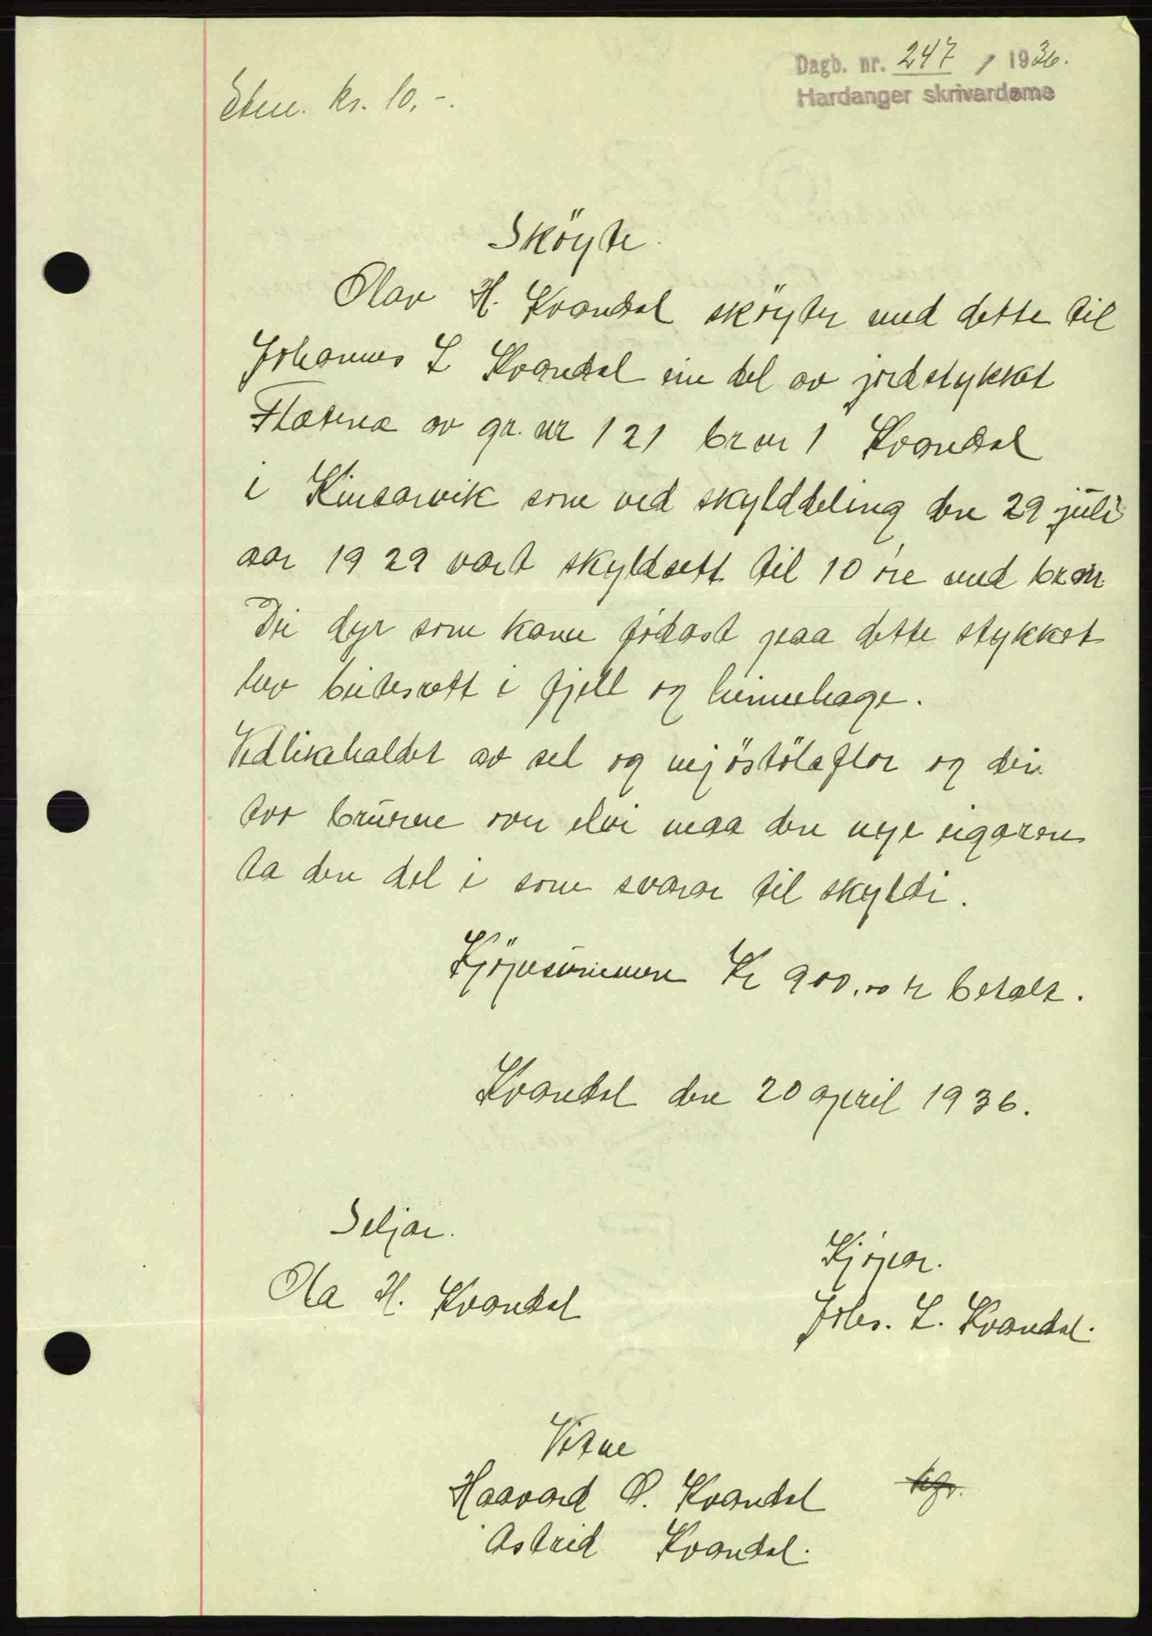 Dagb. nr. 247 / 1936.
Hardanger skrivardøme
Stm. kr. 10,-.
Sköyte.
Olav H. Kvandal sköyter med dette til
Johannes L Kvandal ein del av jordstykket
av gr. nr 121 br nr 1 Kvandal
i Kinsarvik som ved skylddeling den 29 juli
aar 1929 vart skyldsett til 10 öre med br nr
Dei dyr som kann födast paa dette stykket
hev beitesrett i fjell og heimehage.
Vedlikehaldet av sel og mjöstölsflor og dei
tvo brurene yver elvi maa den nye eigaren
ta den del i som svarar til skyldi.
Kjöpesummen Kr 900,00 er betalt.
Kvandal den 20 april 1936.
Seljar.
Ola H. Kvandal
Kjöpar.
Johs. L. Kvandal.
Vitne
Haavard O. Kvandal
Astrid Kvandal.